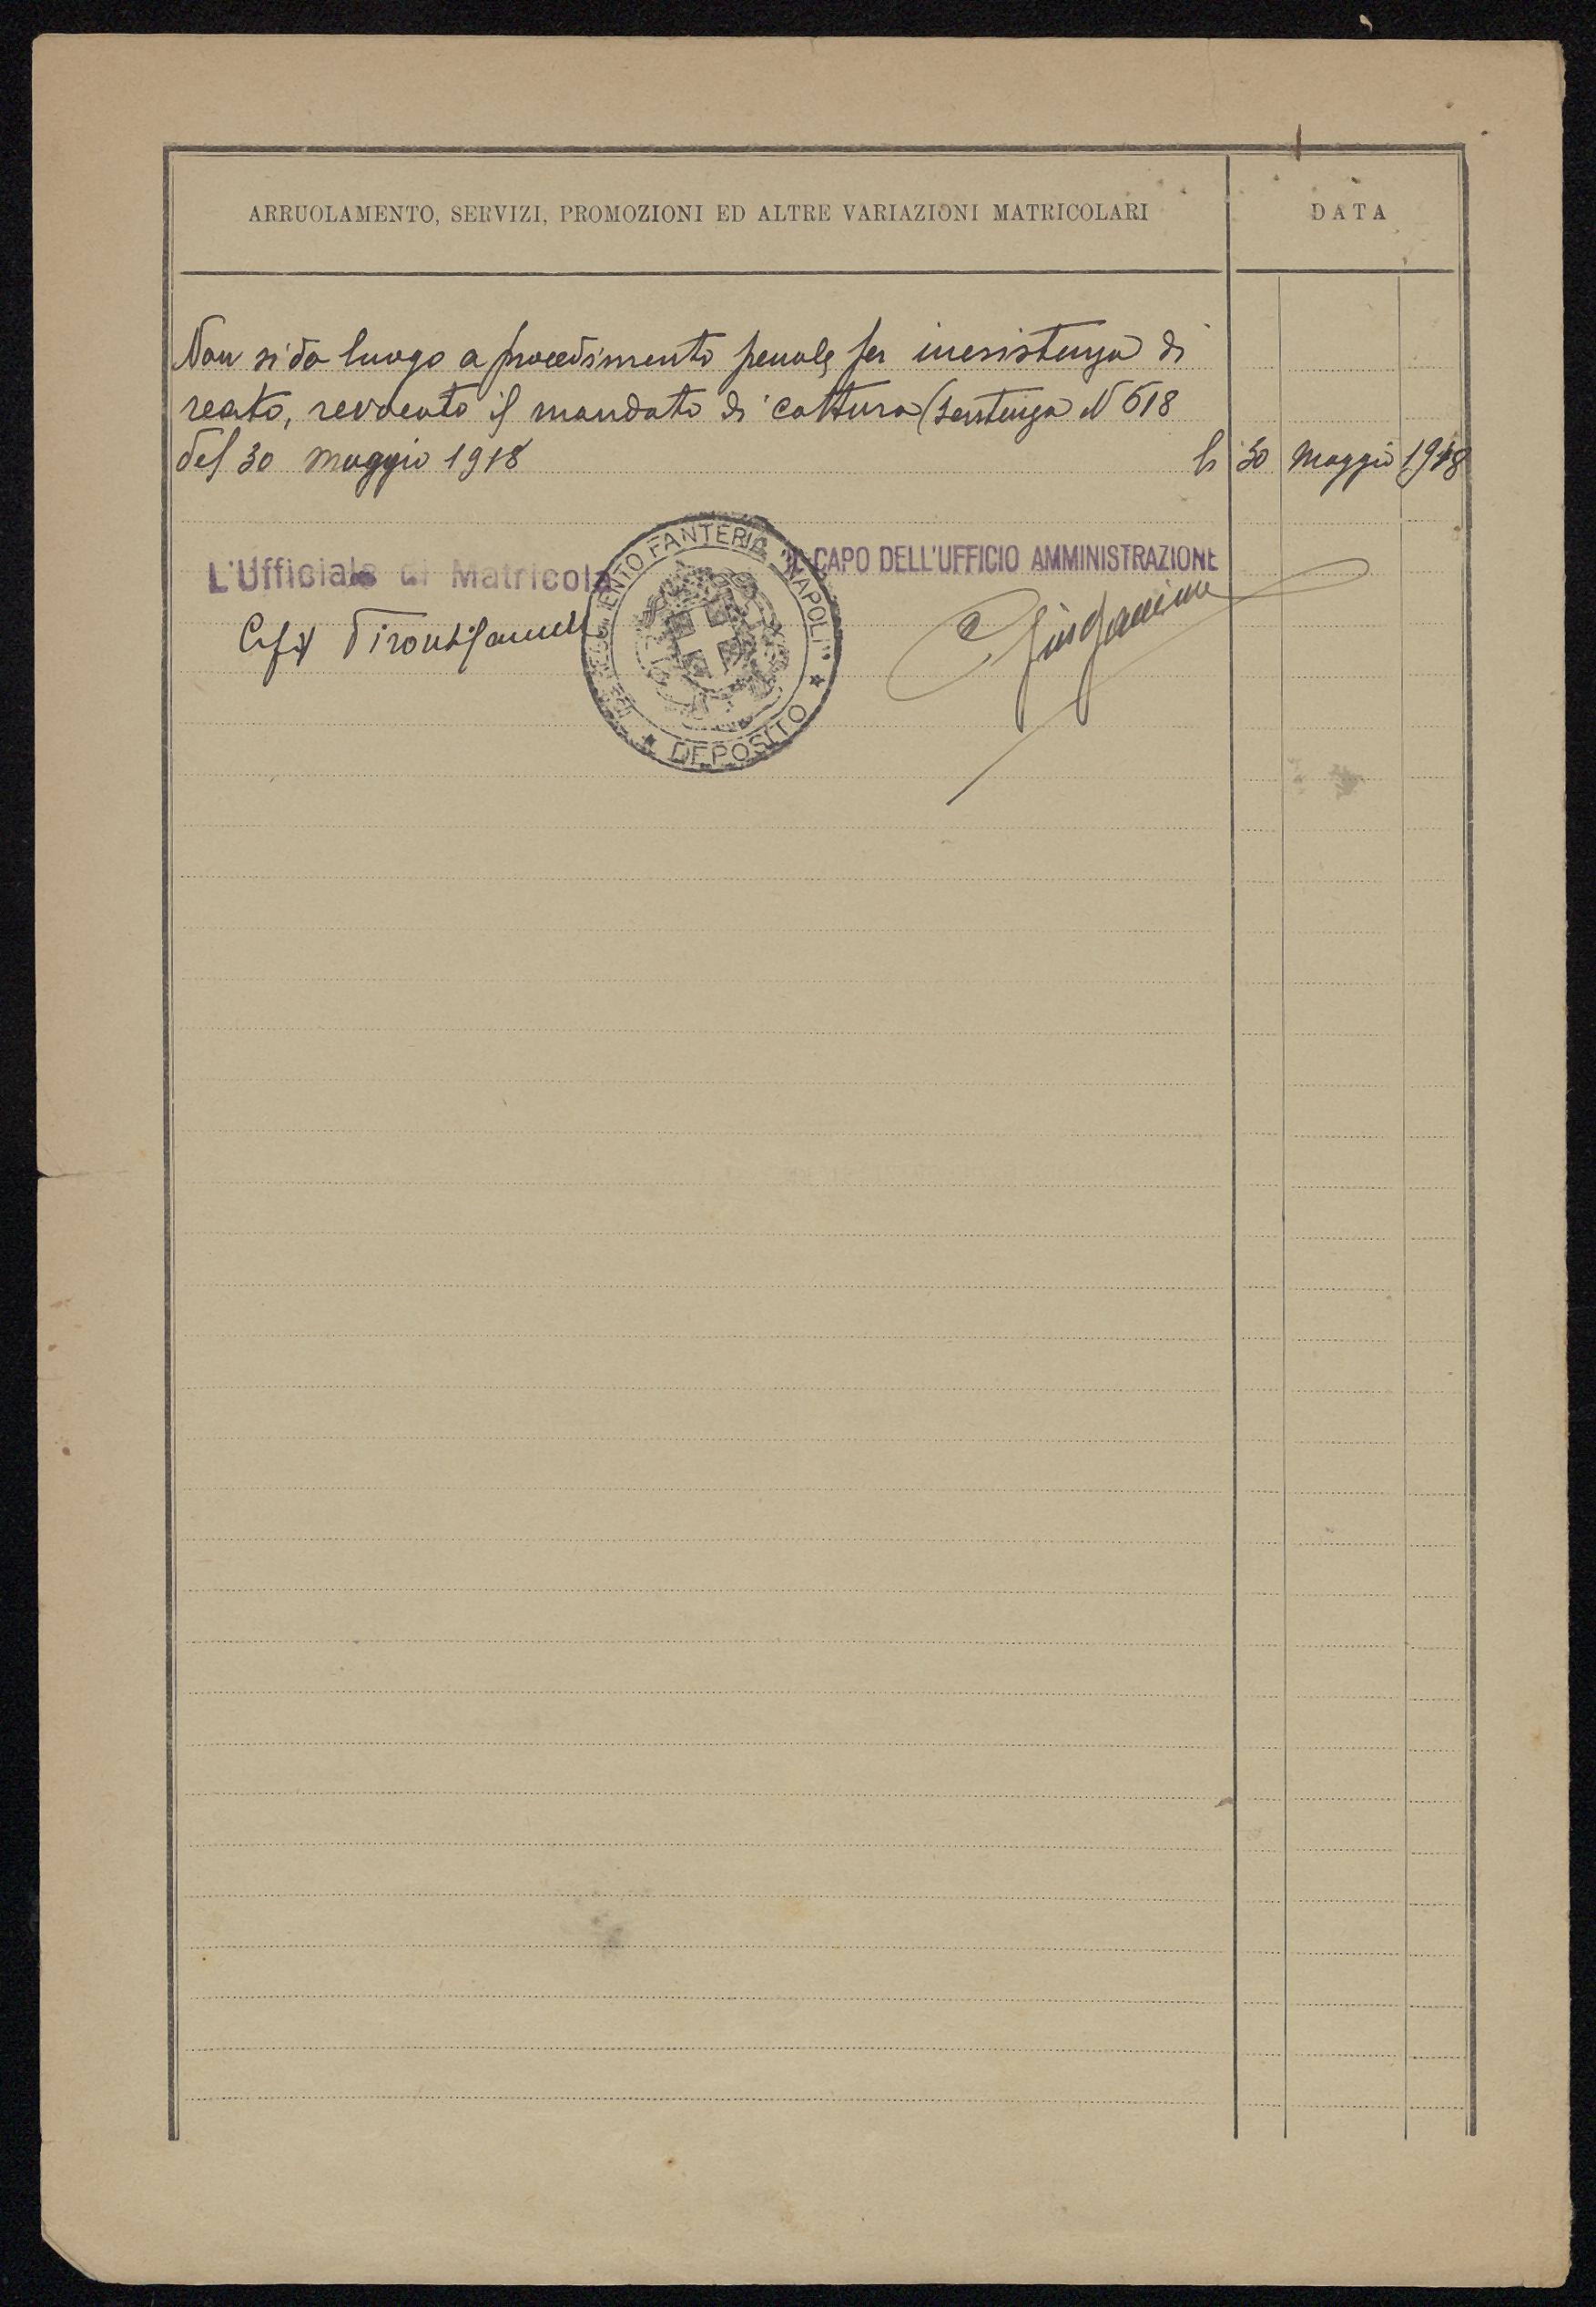 ARRUOLAMENTO, SERVIZI, PROMOZIONI ED ALTRE VARIAZIONI MATRICOLARI
DATA
Non si da luogo a procedimento penale per inesistenza di
reato, revocato il mandato di cattura (sentenza N 618
del 30 maggio 1918 li 30 Maggio 1918
L'Ufficiale di Matricola
FANTERIA "NAPOLI" ★ DEPOSITO ★
CAPO DELL'UFFICIO AMMINISTRAZIONE